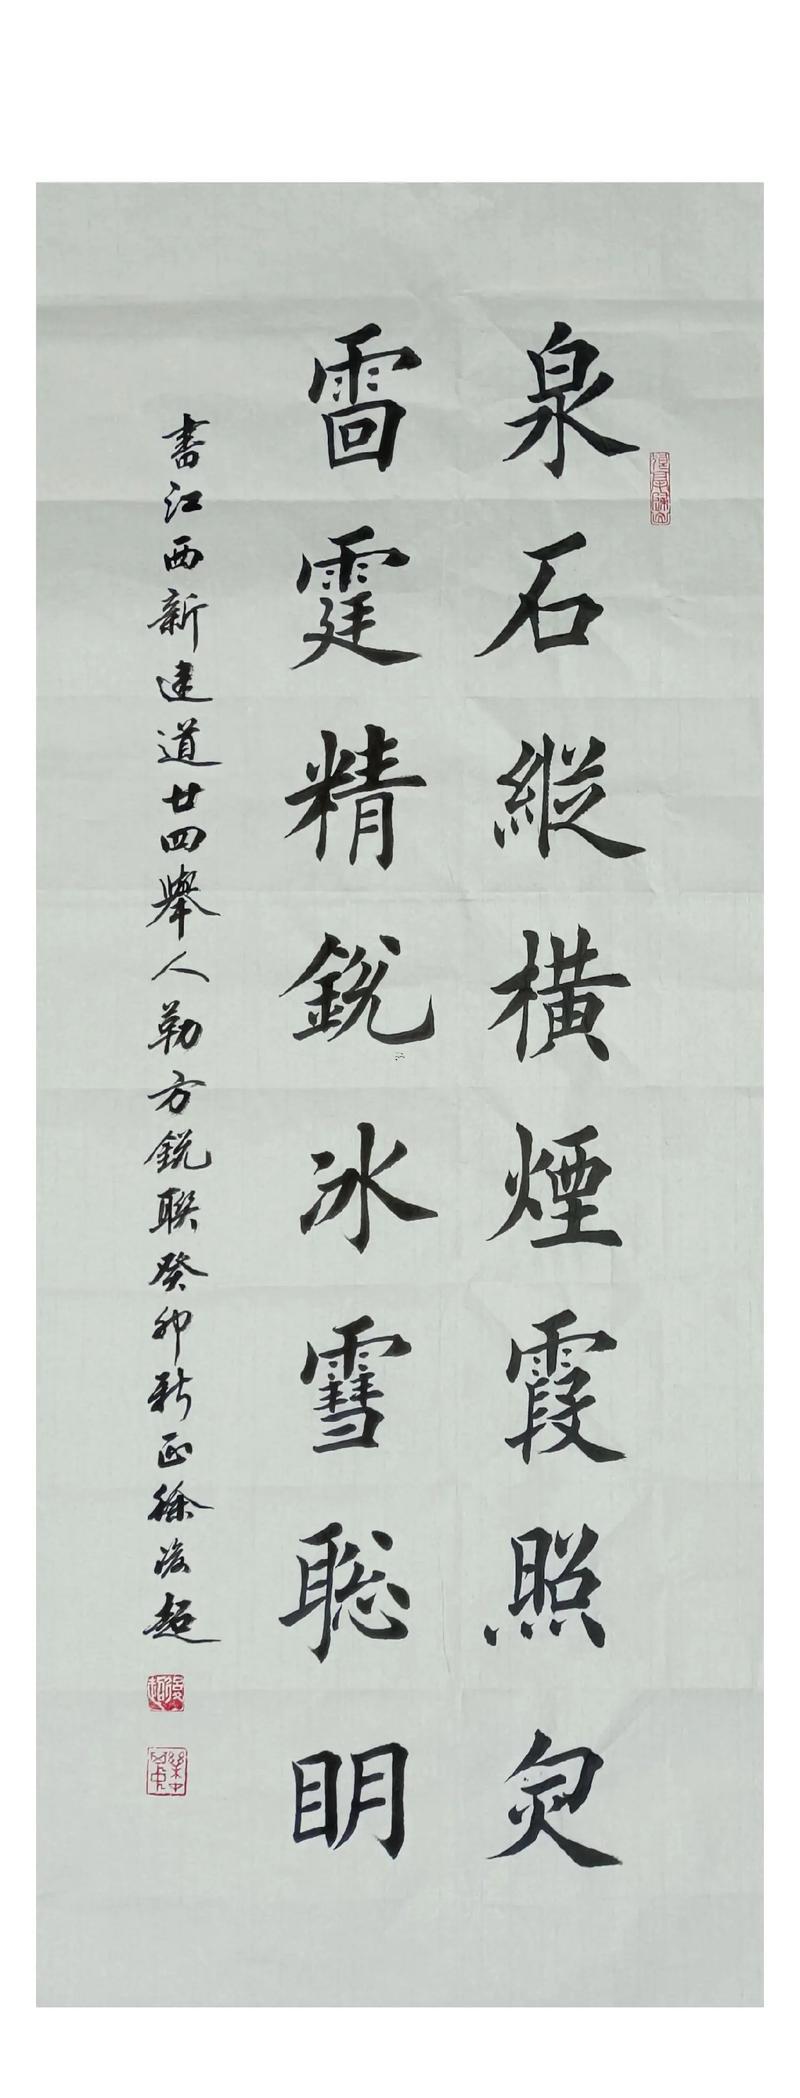 泉石縱橫煙霞照灼
雷霆精銳冰雪聰眀
書江西新建道廿四舉人勒方銳聯癸卯新正徐浚超